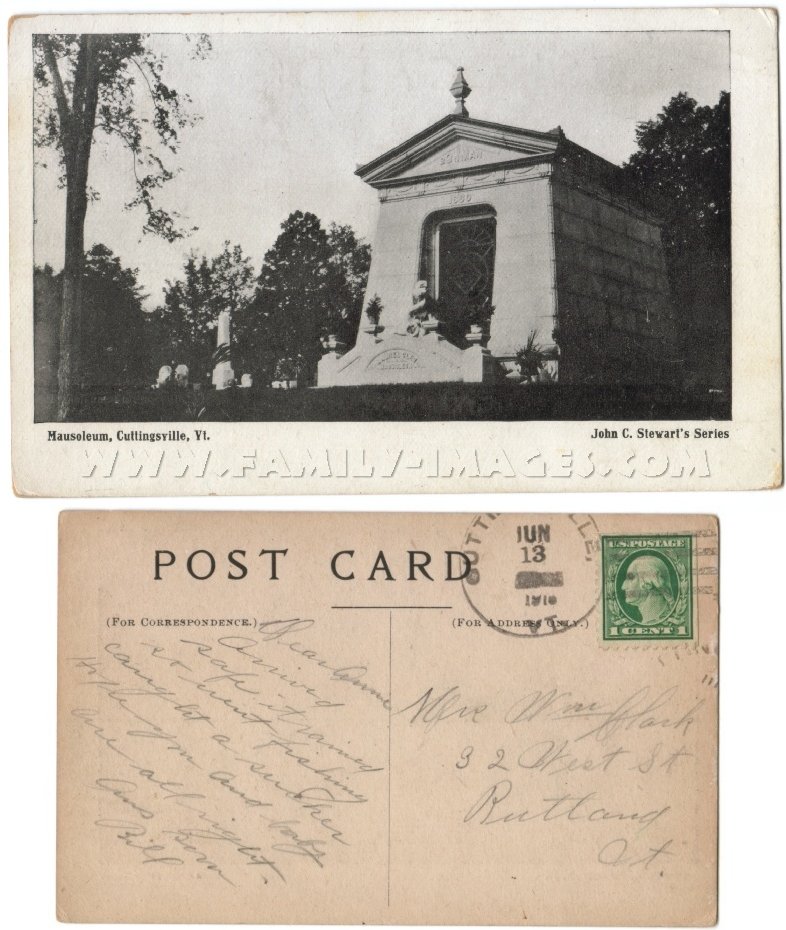 BOWMAN
1880
Mausoleum, Cuttingsville, Vt.
John C. Stewart's Series
WWW.FAMILY-IMAGES.COM
POST CARD
CUTTINGSVILLE,
JUN
13
VT.
U.S. POSTAGE
1 CENT 1
(FOR CORRESPONDENCE.)
(FOR ADDRESS ONLY.)
Dear Anna
Arrived
safe it rained
so went fishing
caught a sucker
Hope you and baby
are all right.
Bill
Mrs Wm Clark
32 West St
Rutland
Vt.